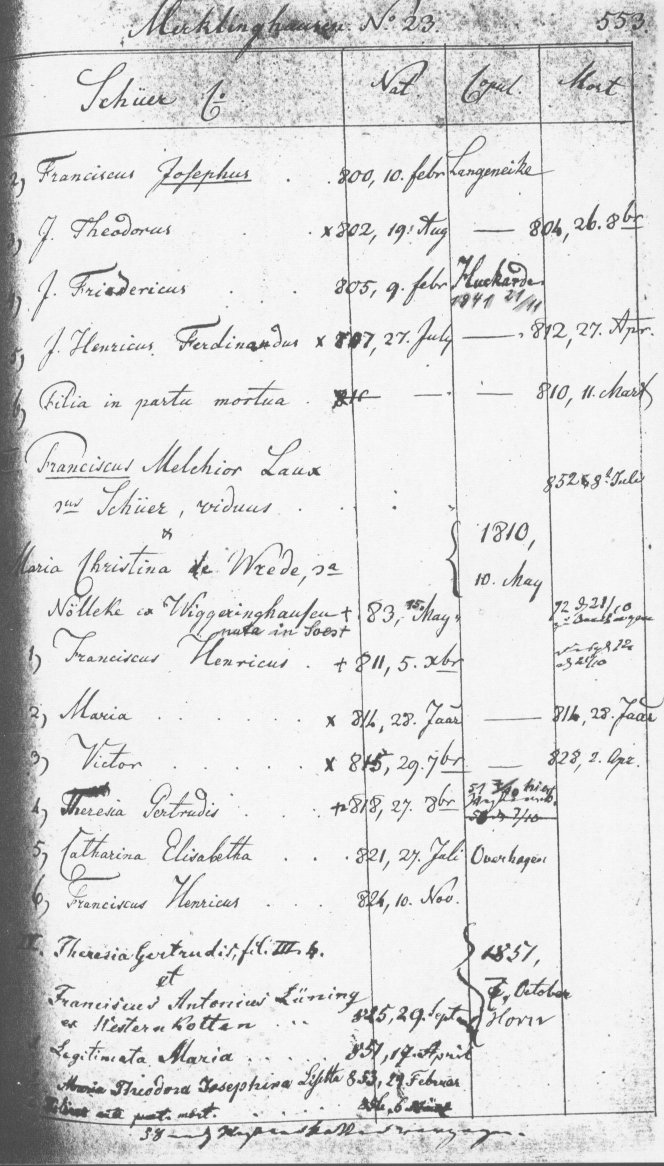 Merklinghausen N° 23. 553.
Schüer Co Nat. Copul. Mort
2) Franciscus Josephus . . 800, 10. febr Langeneike
3) J. Theodorus . . x 802, 19. Aug — 804, 26. 8br
4) J. Friedericus . . 805, 9. febr Huckarde
1841 21/11
5) J. Henricus Ferdinandus x 807, 27. July — 812, 27. Apr.
6) Filia in partu mortua . — — 810, 11. Mart
Franciscus Melchior Laux
Schüer, viduus . . . 852 8t Julii
&
Maria Christina de Wrede, 1810,
10. May
Nölleke ex Wiggeringhausen + 83, 15. May 72 d 28/10
nata in Soest
1) Franciscus Henricus . + 811, 5. xbr
2) Maria . . . . . x 814, 28. Jaar — 814, 28. Jaar
3) Victor . . . . . x 815, 29. 7br — 828, 2. Apr.
4) Theresia Gertrudis . . 818, 27. 8br
5) Catharina Elisabetha . . . 821, 27. Juli Overhagen
6) Franciscus Henricus . . . 824, 10. Nov.
IV. Theresia Gertrudis, fil. III. 4. 1851,
et 7, October
Franciscus Antonius Lüning Horn
ex Westernkotten . . . 825, 29. Sept
Legitimata Maria . . . . . 851, 17. April
Maria Theodora Josephina Lisetta 853, 29 Februar
mort. . . . . 856, 6
58